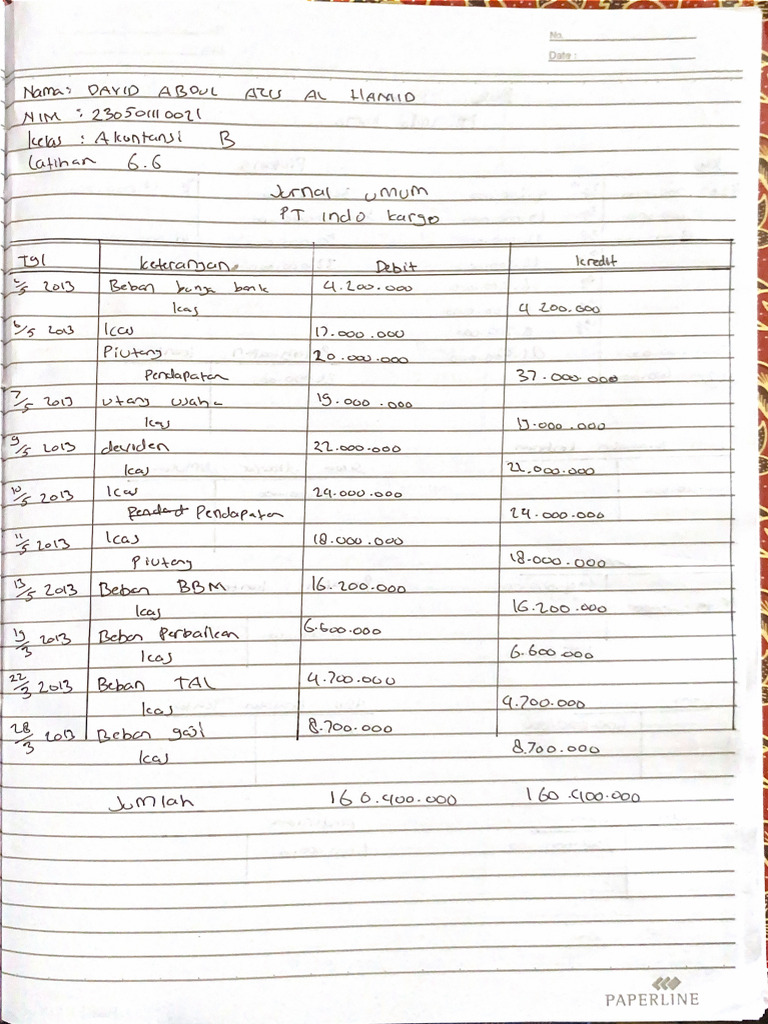 No.
Date :
Nama: DAVID ABDUL AZIS AL HAMID
NIM : 230501110021
Kelas : Akuntansi B
Latihan 6.6
Jurnal Umum
PT Indo Kargo
Tgl Keterangan Debit Kredit
2013 Beban bunga bank 4.200.000
Kas 4 200.000
6/5 2013 Kas 17.000.000
Piutang 20.000.000
Pendapatan 37.000.000
7/5 2013 Utang usaha 19.000.000
Kas 19.000.000
9/5 2013 deviden 22.000.000
Kas 22.000.000
10/5 2013 Kas 24.000.000
Pendapatan 24.000.000
11/5 2013 Kas 18.000.000
Piutang 18.000.000
13/5 2013 Beban BBM 16.200.000
Kas 16.200.000
19/3 2013 Beban Perbaikan 6.600.000
Kas 6.600.000
22/3 2013 Beban TAL 4.700.000
Kas 4.700.000
28/3 2013 Beban gaji 8.700.000
Kas 8.700.000
Jumlah 160.400.000 160.400.000
PAPERLINE